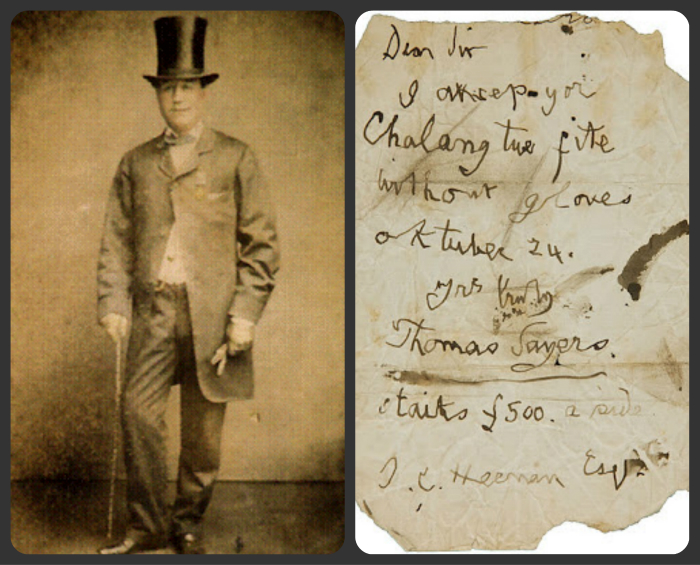 Dear Sir
I akscep yor
Chalang tue fite
without gloves
oktuber 24.
Yrs
Thomas Sayers.
staiks £500. a side
J. C. Heenan Esqr